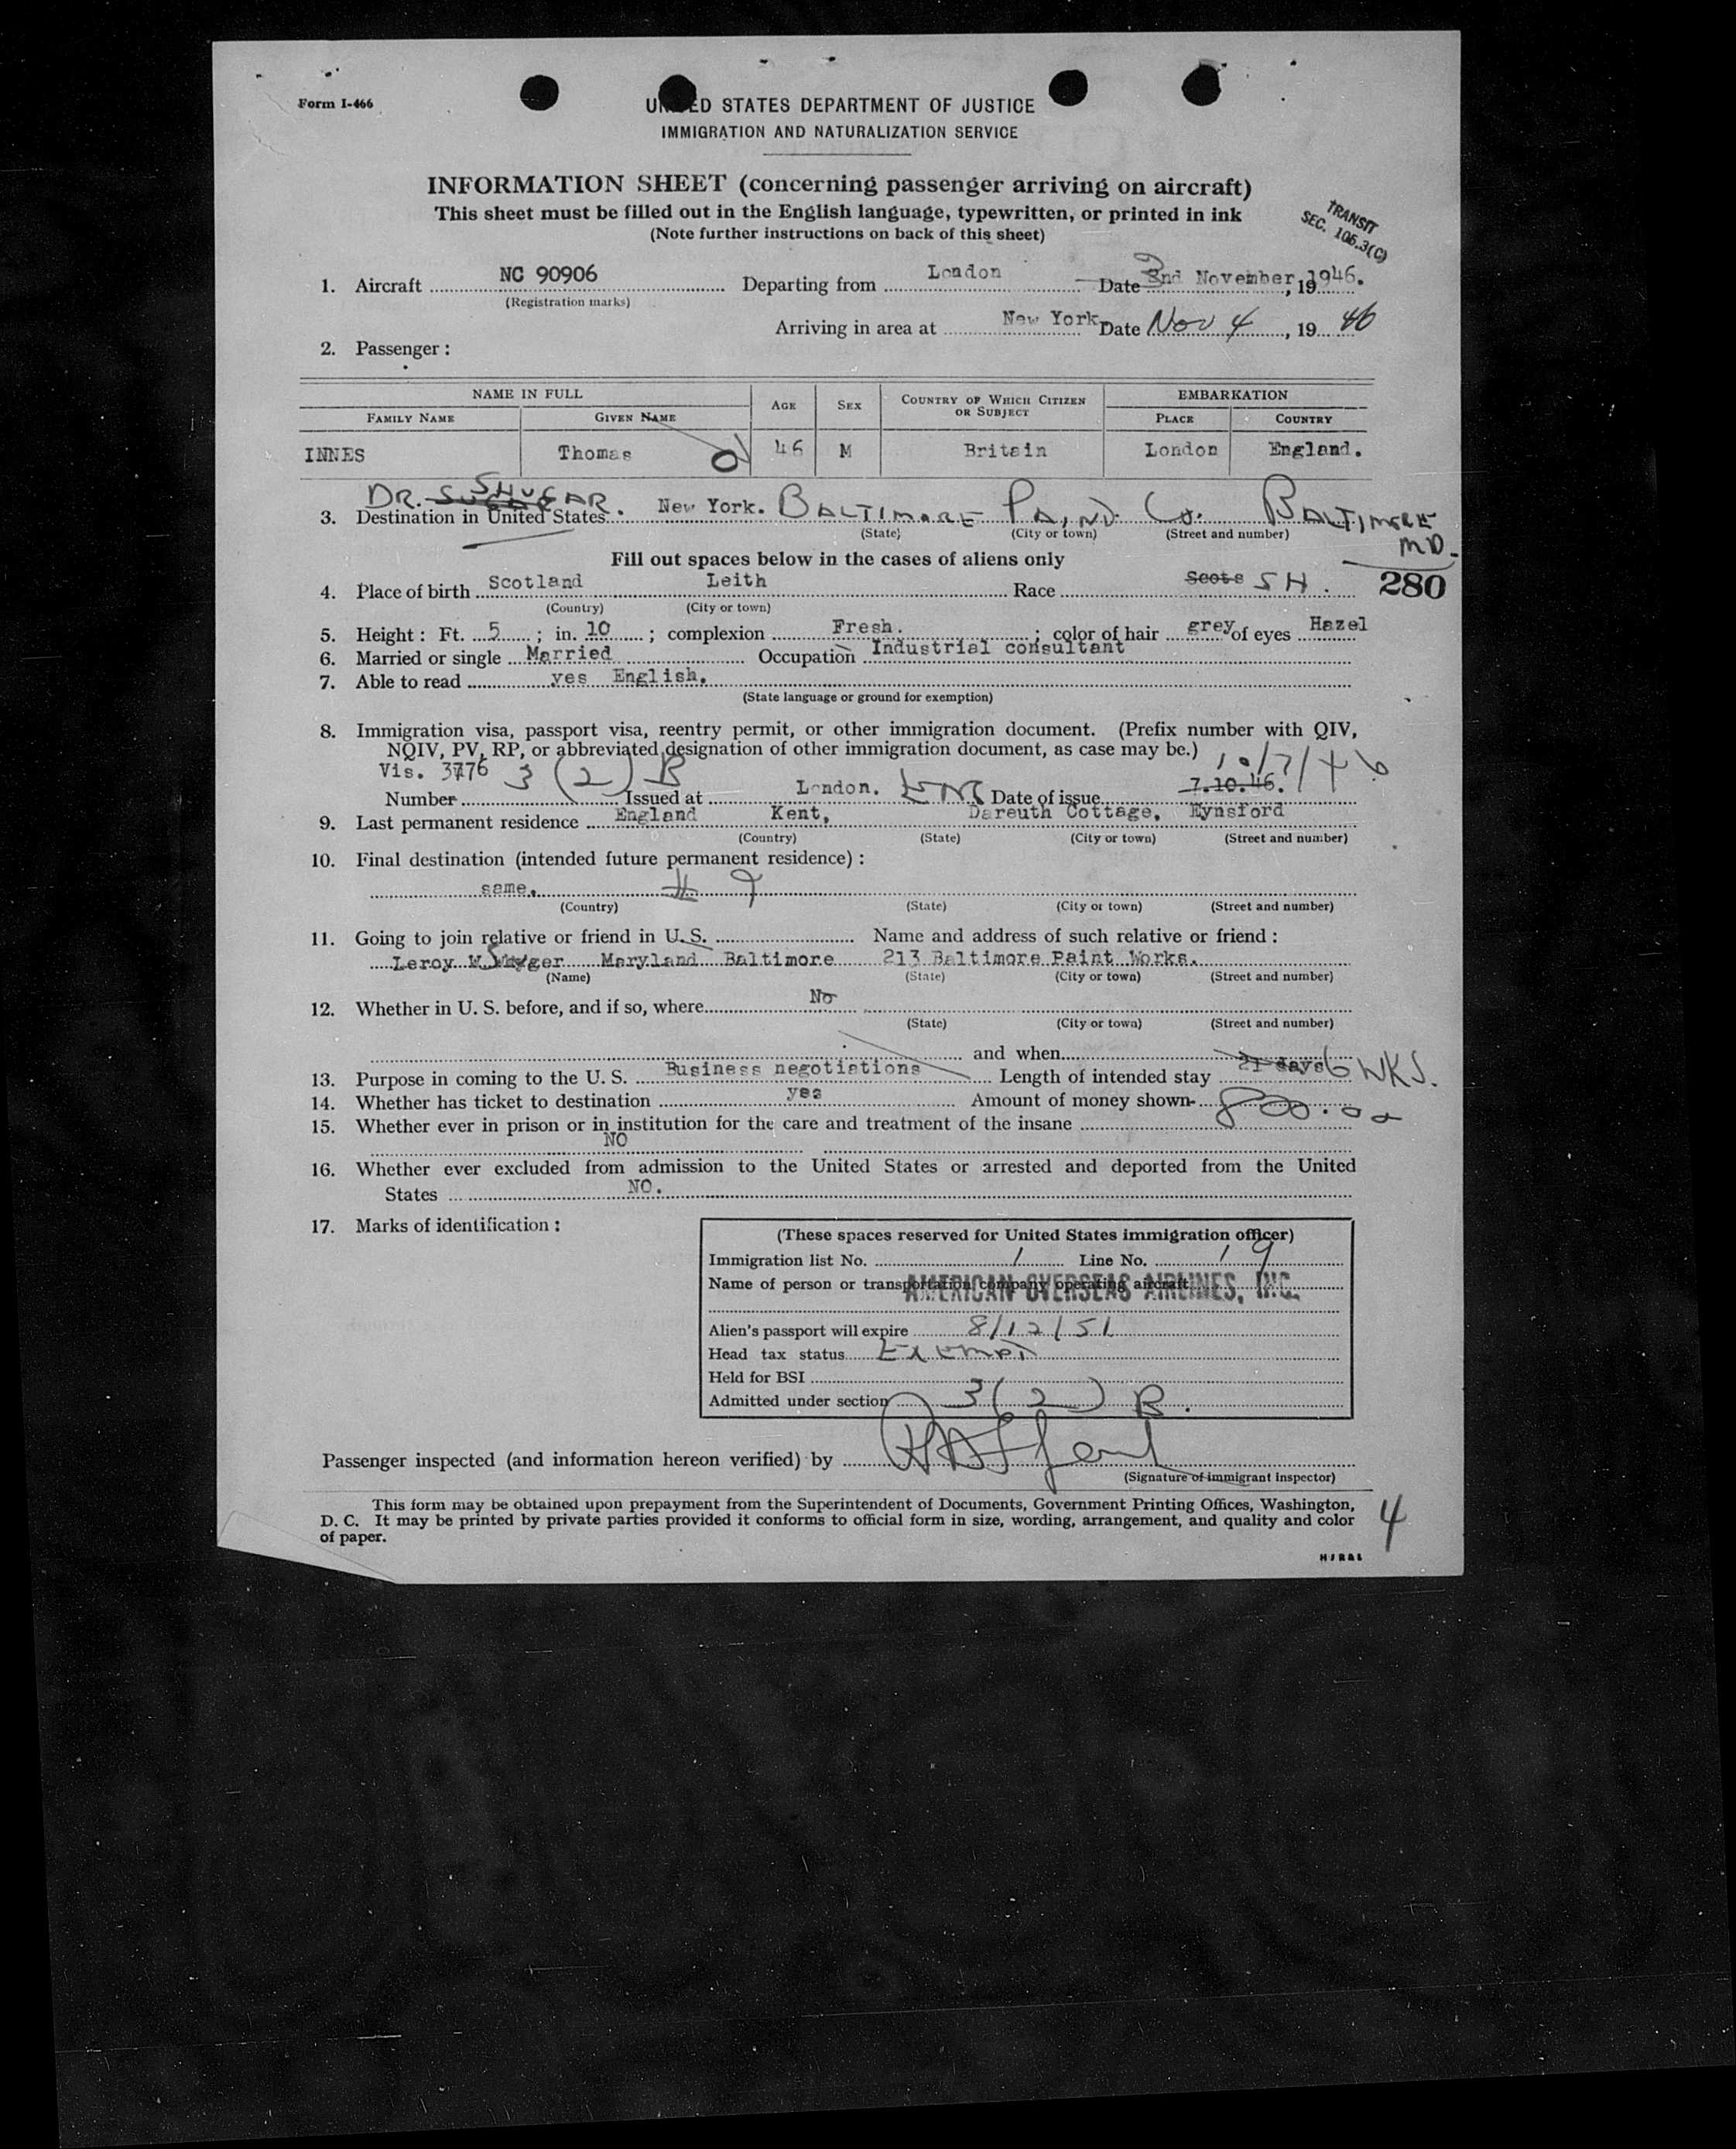 Form I-466
UNITED STATES DEPARTMENT OF JUSTICE
IMMIGRATION AND NATURALIZATION SERVICE
INFORMATION SHEET (concerning passenger arriving on aircraft)
This sheet must be filled out in the English language, typewritten, or printed in ink
(Note further instructions on back of this sheet)
TRANSIT
SEC. 106.3(C)
1. Aircraft NC 90906 Departing from London Date 2nd November, 1946.
(Registration marks)
Arriving in area at New York Date Nov 4, 19 46
2. Passenger:
NAME IN FULL AGE SEX COUNTRY OF WHICH CITIZEN OR SUBJECT EMBARKATION
FAMILY NAME GIVEN NAME PLACE COUNTRY
INNES Thomas 46 M Britain London England.
DR. SHUGAR.
3. Destination in United States New York. BALTIMORE PAINT Co. BALTIMORE MD.
(State) (City or town) (Street and number)
Fill out spaces below in the cases of aliens only
280
4. Place of birth Scotland Leith Race Scots SH.
(Country) (City or town)
5. Height: Ft. 5; in. 10; complexion Fresh.; color of hair grey of eyes Hazel
6. Married or single Married Occupation Industrial consultant
7. Able to read yes English.
(State language or ground for exemption)
8. Immigration visa, passport visa, reentry permit, or other immigration document. (Prefix number with QIV,
NQIV, PV, RP, or abbreviated designation of other immigration document, as case may be.)
Vis. 3776 3(2)B 10/7/46
Number Issued at London. Eng Date of issue 7.10.46.
9. Last permanent residence England Kent, Dareuth Cottage, Eynsford
(Country) (State) (City or town) (Street and number)
10. Final destination (intended future permanent residence):
same. # 9
(Country) (State) (City or town) (Street and number)
11. Going to join relative or friend in U. S. Name and address of such relative or friend:
Leroy W. Maryland Baltimore 213 Baltimore Paint Works.
(Name) (State) (City or town) (Street and number)
12. Whether in U. S. before, and if so, where No
(State) (City or town) (Street and number)
and when
13. Purpose in coming to the U. S. Business negotiations Length of intended stay 21 days 6 WKS.
14. Whether has ticket to destination yes Amount of money shown 800.00
15. Whether ever in prison or in institution for the care and treatment of the insane
NO
16. Whether ever excluded from admission to the United States or arrested and deported from the United
States NO.
17. Marks of identification:
(These spaces reserved for United States immigration officer)
Immigration list No. 1 Line No. 19
Name of person or transportation company operating aircraft AMERICAN OVERSEAS AIRLINES, INC.
Alien's passport will expire 8/12/51
Head tax status Exempt
Held for BSI
Admitted under section 3(2)B.
Passenger inspected (and information hereon verified) by
(Signature of immigrant inspector)
This form may be obtained upon prepayment from the Superintendent of Documents, Government Printing Offices, Washington,
D. C. It may be printed by private parties provided it conforms to official form in size, wording, arrangement, and quality and color
of paper.
4